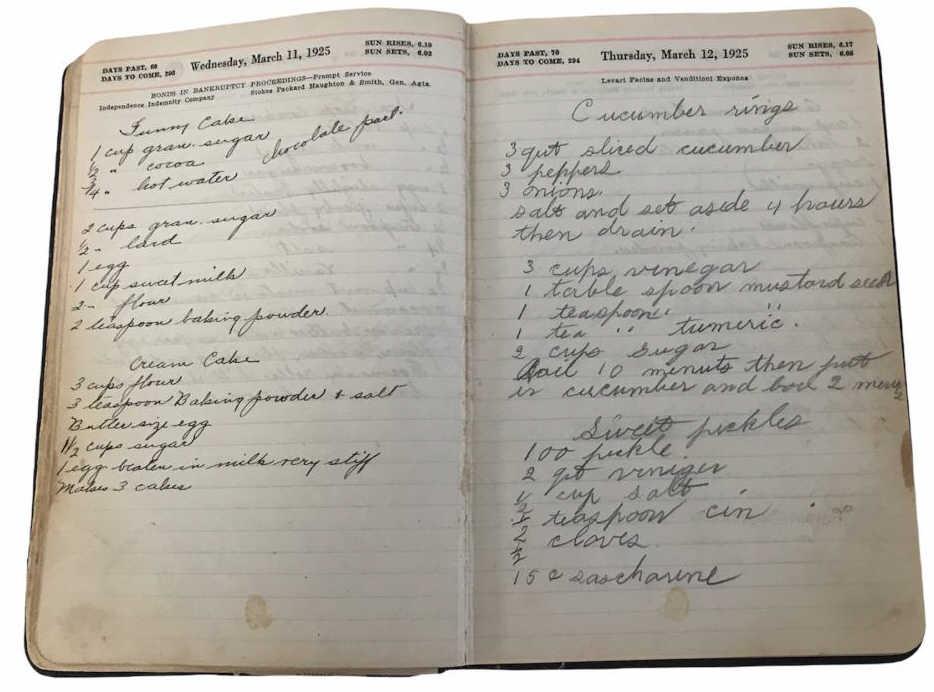 DAYS PAST, 69
DAYS TO COME, 295
Wednesday, March 11, 1925
SUN RISES, 6.19
SUN SETS, 6.02
BONDS IN BANKRUPTCY PROCEEDINGS—Prompt Service
Independence Indemnity Company Stokes Packard Haughton & Smith, Gen. Agts.
Funny Cake
1 cup gran. sugar
1/2 " cocoa chocolate part.
3/4 " hot water
2 cups gran. sugar
1/2 " lard
1 egg
1 cup sweet milk
2 " flour
2 teaspoon baking powder
Cream Cake
3 cups flour
3 teaspoon Baking powder & salt
Butter size egg
1 1/2 cups sugar
1 egg beaten in milk very stiff
Makes 3 cakes
DAYS PAST, 70
DAYS TO COME, 294
Thursday, March 12, 1925
SUN RISES, 6.17
SUN SETS, 6.03
Levari Facias and Venditioni Exponas
Cucumber rings
3 qut sliced cucumber
3 peppers
3 onions.
salt and set aside 4 hours
then drain.
3 cups vinegar
1 table spoon mustard seed
1 teaspoon "
1 tea " tumeric.
2 cups sugar
Boil 10 minuts then put
in cucumber and boil 2
Sweet pickles
100 pickle
2 qt viniger
1/2 cup salt
1/2 teaspoon cin
1/2 cloves
15 c saccharine